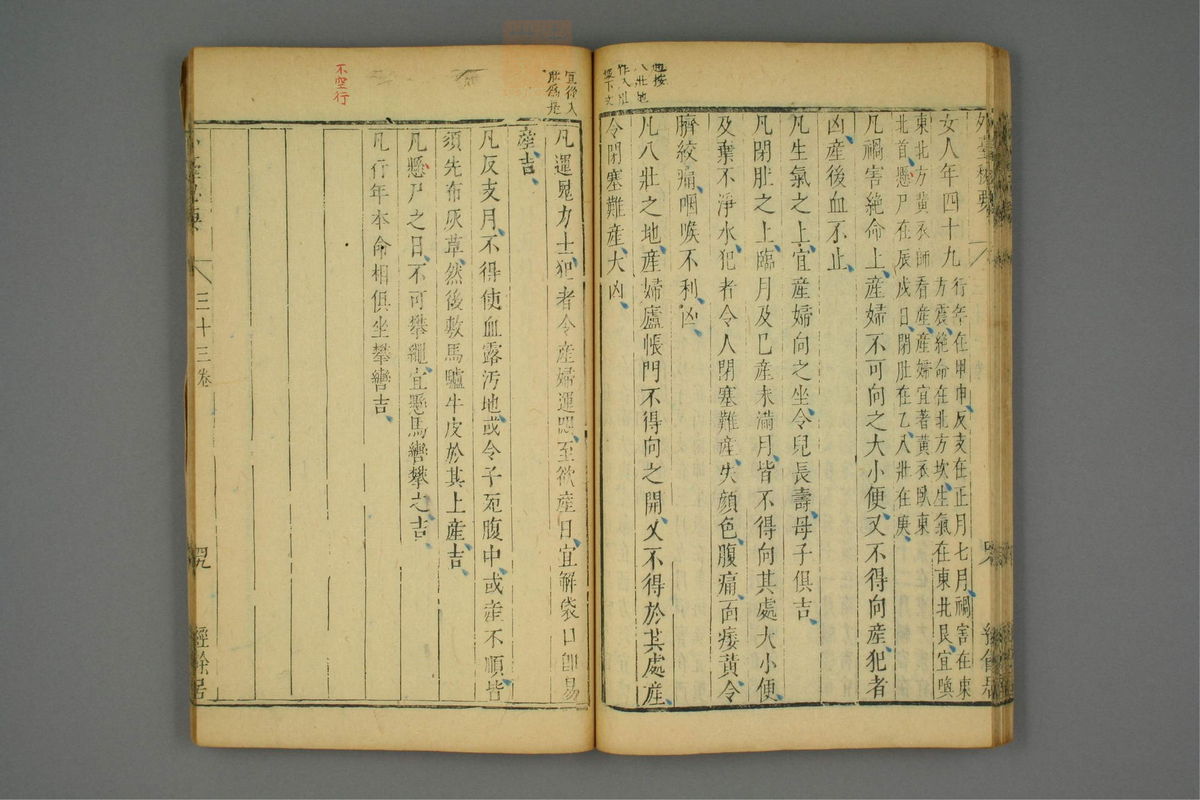 外臺秘要
女人年四十九
行年在甲申反支在正月七月禍害在東
方震絶命在北方坎生氣在東北艮宜喚
東北方黃衣師看産産婦宜著黃衣臥東
北首懸尸在辰戌日閉肚在乙八壯在庚
凡禍害絶命上産婦不可向之大小便又不得向産犯者
凶産後血不止
凡生氣之上宜産婦向之坐令兒長壽母子俱吉
凡閉肚之上臨月及已産未滿月皆不得向其處大小便
及棄不淨水犯者令人閉塞難産失顔色腹痛面痿黃令
臍絞痛咽喉不利凶
凡八壯之地産婦廬帳門不得向之開又不得於其處産
令閉塞難産大凶
凡運鬼力士犯者令産婦運悶至欲産日宜解袋口即易
産吉
凡反支月不得使血露汚地或令子死腹中或産不順皆
須先布灰草然後敷馬驢牛皮於其上産吉
凡懸尸之日不可攀繩宜懸馬轡攀之吉
凡行年本命相俱坐攀轡吉
不空行
三十三卷
經餘居